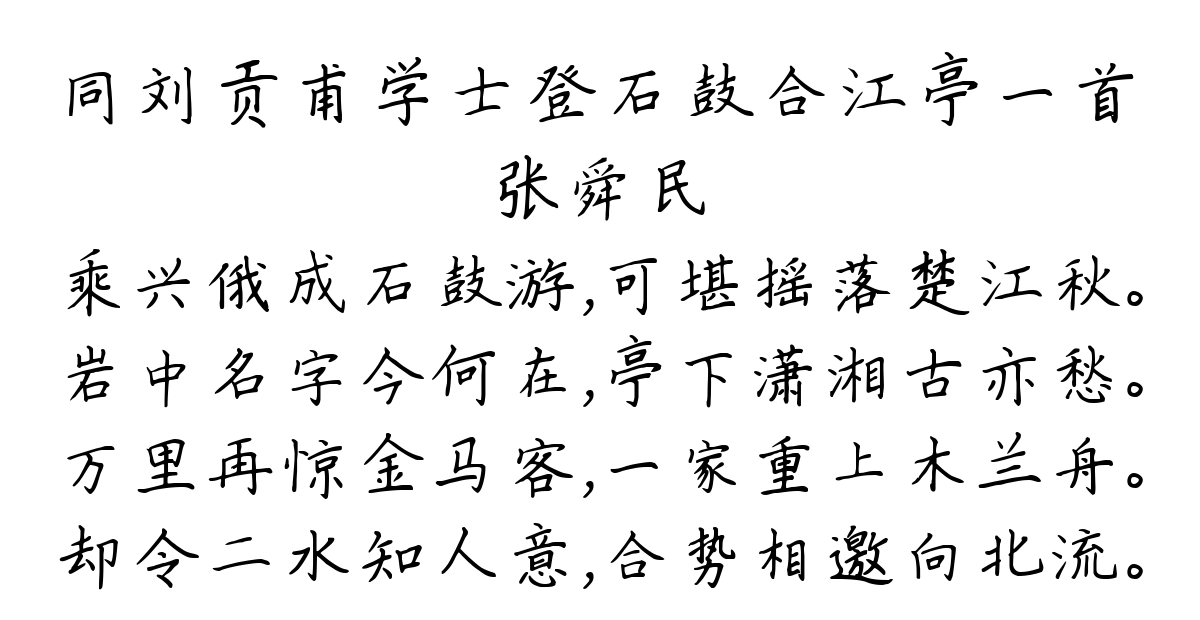 同刘贡甫学士登石鼓合江亭一首
张舜民
乘兴俄成石鼓游,可堪摇落楚江秋。
岩中名字今何在,亭下潇湘古亦愁。
万里再惊金马客,一家重上木兰舟。
却令二水知人意,合势相邀向北流。